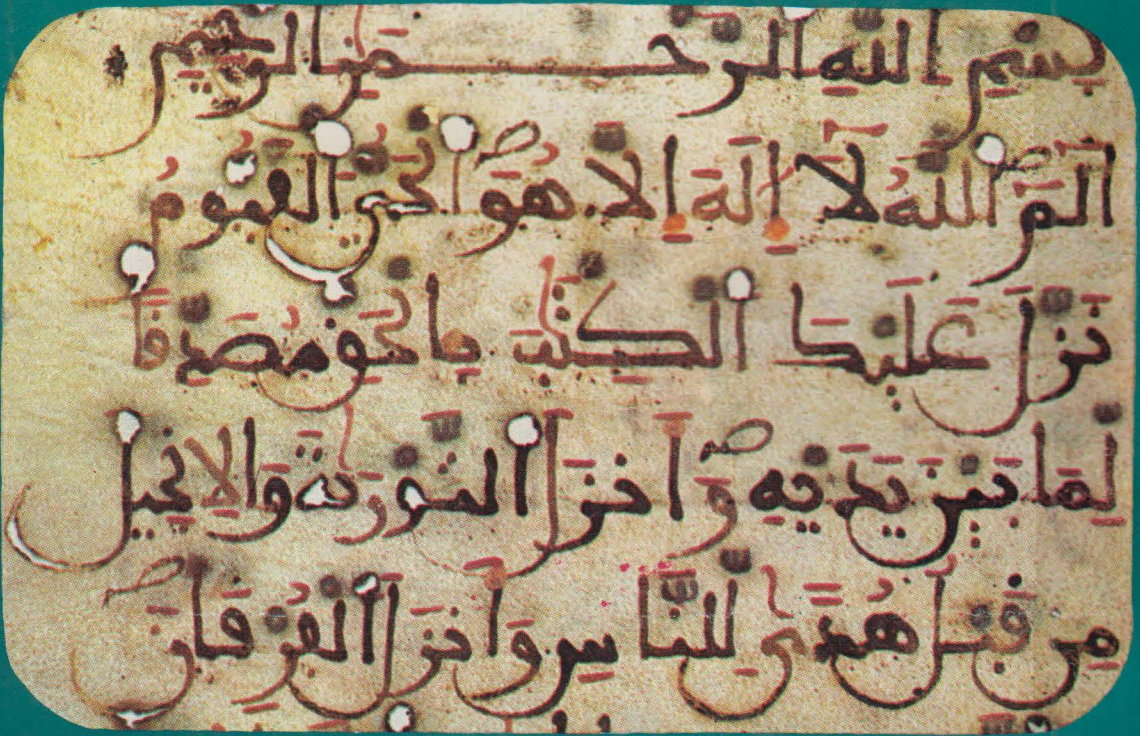 بسم الله الرحمن الرحيم
الم الله لا إله إلا هو الحي القيوم
نزل عليك الكتب بالحق مصدقا
لما بين يديه وأنزل التورية والإنجيل
من قبل هدى للناس وأنزل الفرقان